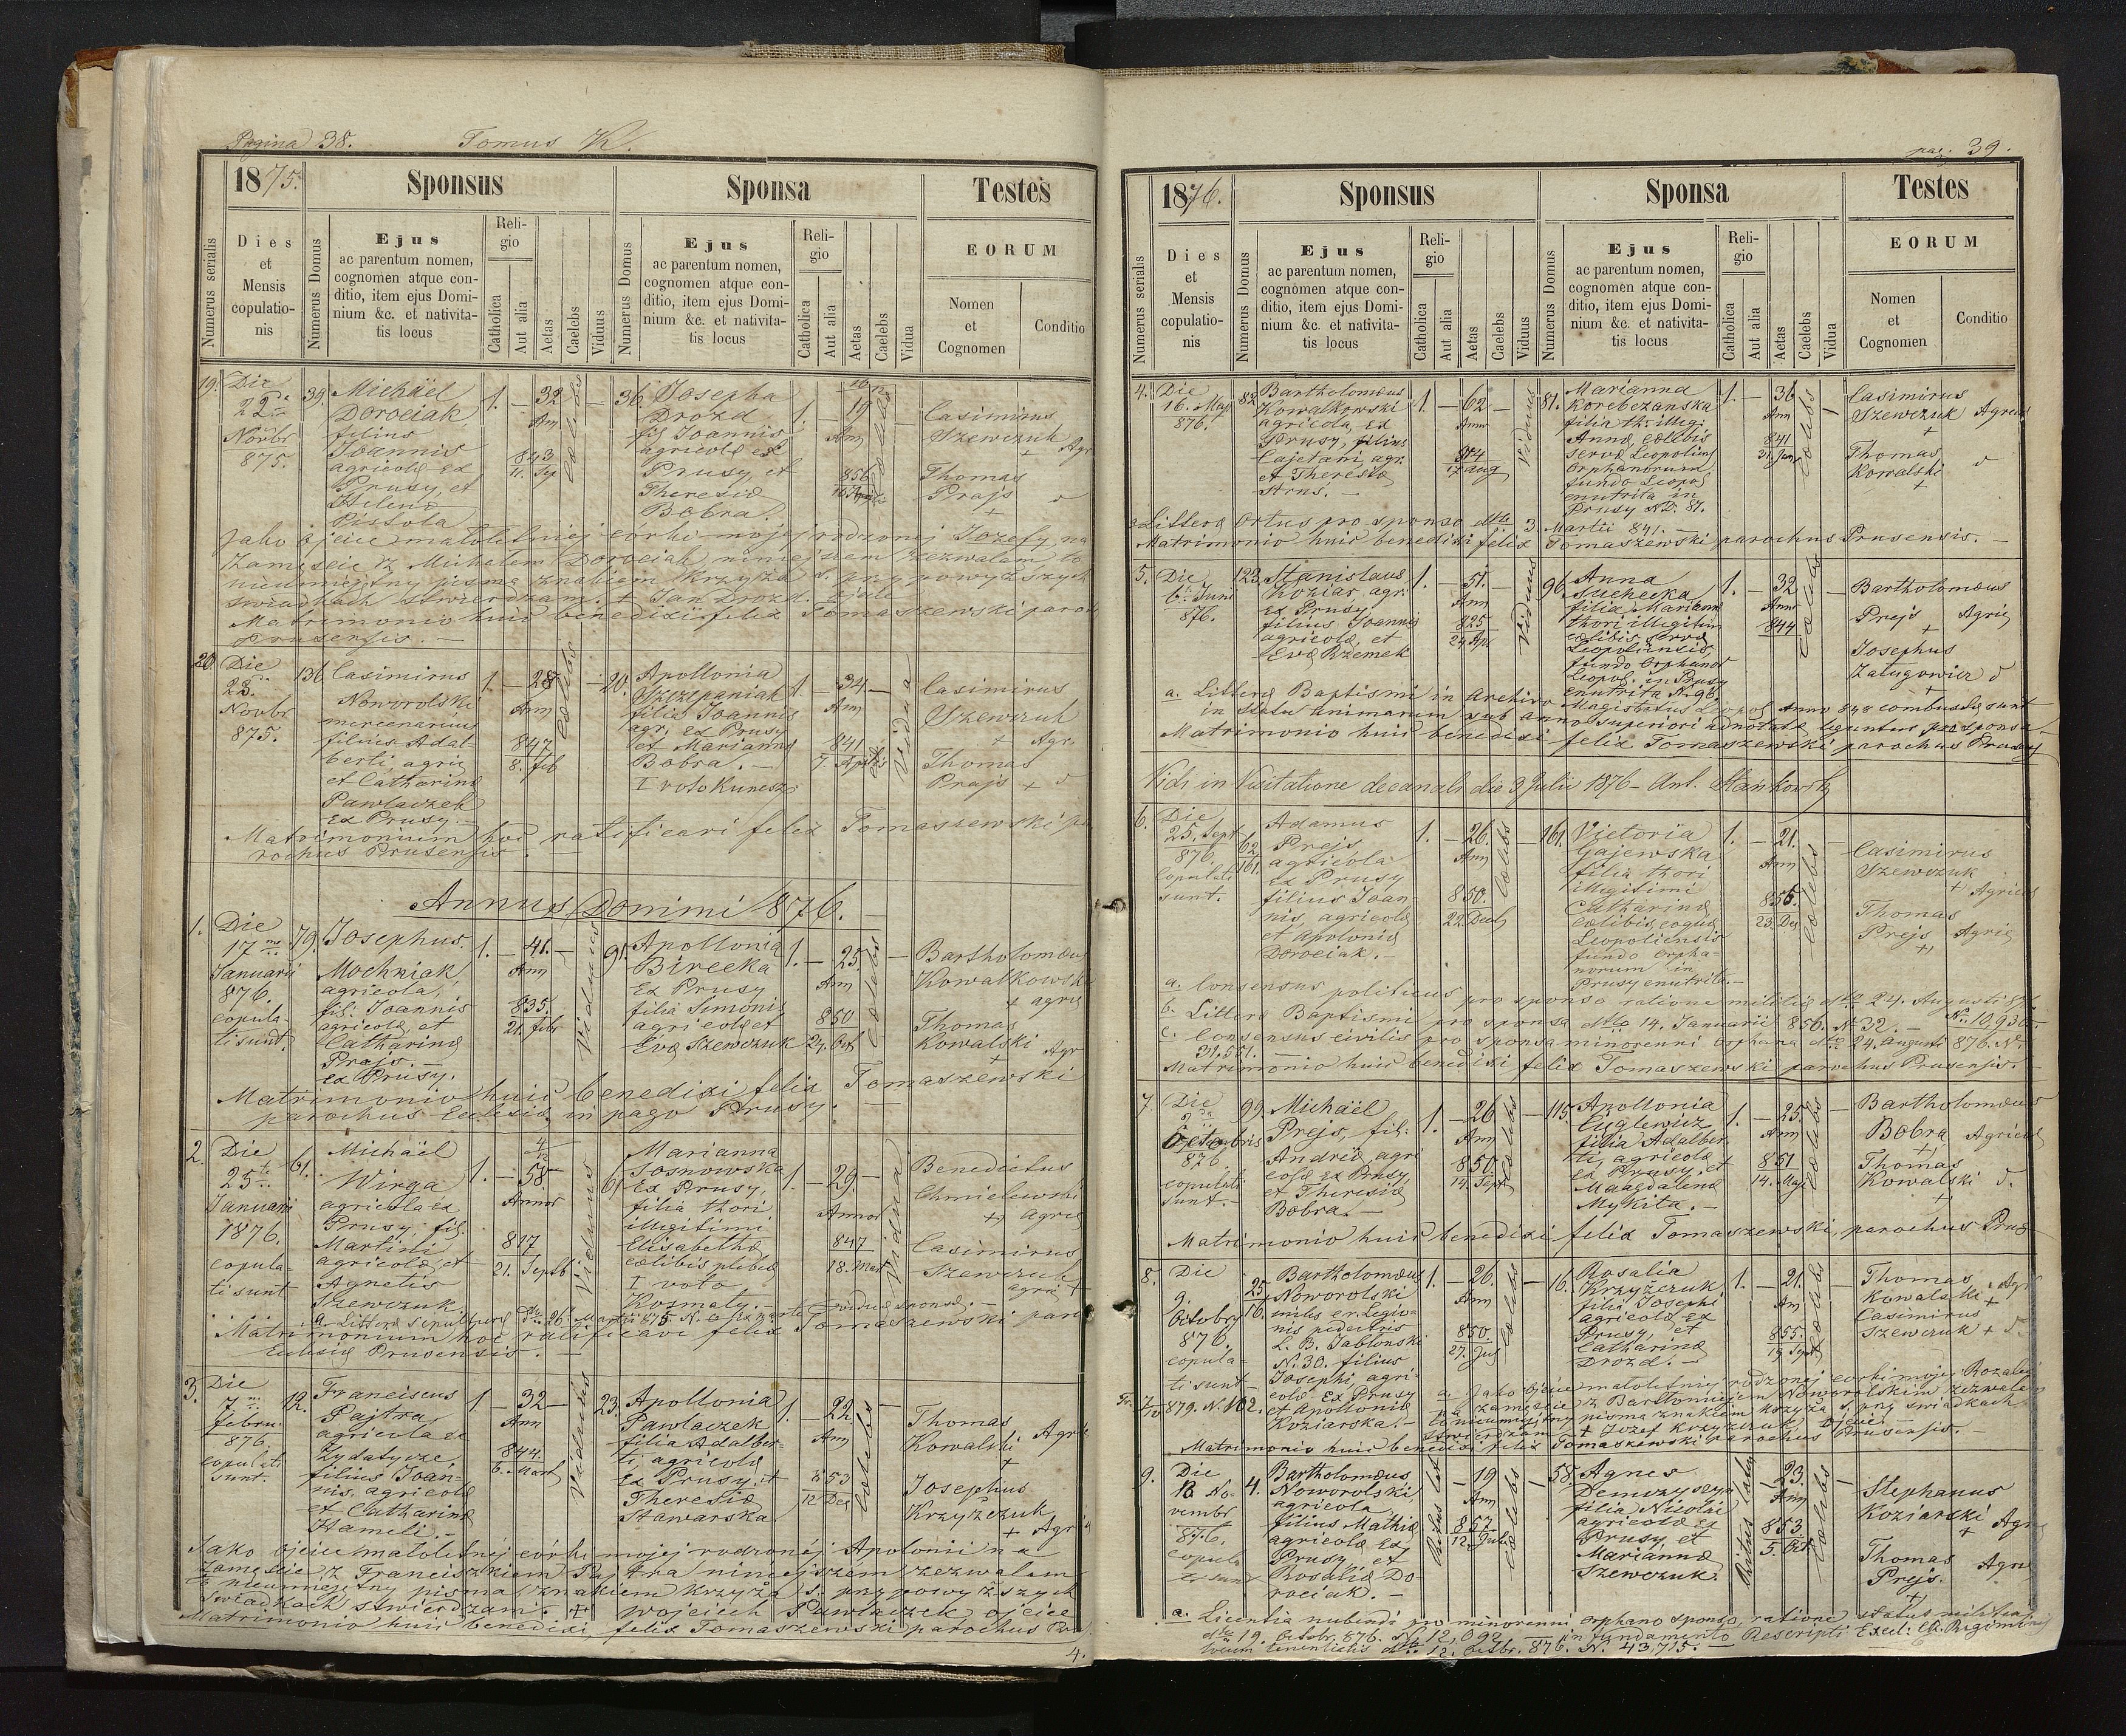 Pagina 38. Tomus V.
1875.
Sponsus
Sponsa
Testes
Numerus serialis
Dies
et
Mensis
copulatio-
nis
Numerus Domus
Ejus
ac parentum nomen,
cognomen atque con-
ditio, item ejus Domi-
nium &c. et nativita-
tis locus
Reli-
gio
Catholica
Aut alia
Aetas
Caelebs
Viduus
Numerus Domus
Ejus
ac parentum nomen,
cognomen atque con-
ditio, item ejus Domi-
nium &c. et nativita-
tis locus
Reli-
gio
Catholica
Aut alia
Aetas
Caelebs
Vidua
EORUM
Nomen
et
Cognomen
Conditio
19.
Die
22da
Novbr
875.
39.
Michaël
Dorociak
filius
Joannis
agricolæ ex
Prusy, et
Helenæ
Pistola
1.
—
32
Ann
843
11. Sep
cælebs
—
36.
Josepha
Drozd
fil Joannis
agricolæ ex
Prusy, et
Theresiæ
Bobra.
1.
19
Ann
856
Casimirus
Szewczuk
+ Agr
Thomas
Prajs
+
Jako ojciec małoletniej córki mojej rodzonej Jozefy na
Zamęście z Michałem Dorociak niniejszem zezwalam to
nieumiejętny pisma znakiem krzyża s. przy powyższych
świadkach stwierdzam. + Jan Drozd. Ojciec
Matrimonio huic benedixi felix Tomaszewski paroch
Prusensis. —
20.
Die
23.
Novbr
875.
136
Casimirus
Noworolski
mercenarius
filius Adal-
berti, agric
et Catharinæ
Pawlaczek
Ex Prusy. —
1.
—
28
Ann
847
8. feb
cælebs
—
20.
Apollonia
Szczepaniak
filia Joannis
agr. ex Prusy
et Mariannæ
Bobra. —
I voto Kunesz
1.
—
34
Ann
841
7. April
Vidua
Casimirus
Szewczuk
+ Agr.
Thomas
Prajs +
Matrimonium hoc ratificavi felix Tomaszewski pa
rochus Prusensis.
Annus Domini 1876.
1.
Die
17ma
Januarii
876.
copula-
ti sunt.
79.
Josephus
Mochniak
agricola,
fil. Joannis
agricolæ, et
Catharinæ
Prajs
ex Prusy.
1.
—
41.
Ann
835.
21. febr
Viduus
91.
Apollonia
Birecka
Ex Prusy
filia Simonis
agricolæ et
Evæ Szewczuk
1.
—
25.
Ann
850
24. Oct
cælebs
Bartholomæus
Kowalkowsk
+ agric
Thomas
Kowalski
+ Agr
Matrimonio huic benedixi felix Tomaszewski
parochus Ecclesiæ in pago Prusy.
2.
Die
25ta
Januarii
1876.
copula-
ti sunt
61.
Michaël
Wirga
agricola ex
Prusy, fil.
Martini
agricolæ, et
Agnetis
Szewczuk.
1.
—
58.
Annor
817
21. Septb
Viduus
61
Marianna
Sosnowska
Ex Prusy,
filia thori
illegitimi
Elisabethæ
cælibis plebeæ
I voto
Kosmaty. —
1.
—
29.
Annor
847
18. Mar
Vidua
Benedictus
Chmielewski
+ agric
Casimirus
Szewczuk
agric +
a. Litteræ sepulturæ dto 26 Martii 875 N. ex parte viduæ sponsæ. —
Matrimonium hoc ratificavi felix Tomaszewski paro
Ecclesiæ Prusensis. —
3.
Die
7ma
febru.
876
copulati
sunt.
12.
Franciscus
Pajtra
agricola ex
Zydatycze,
filius Joan-
nis, agricolæ
et Catharinæ
Hameli. —
1
—
32
Ann
844.
6. Mart
Viduus
23.
Apollonia
Pawlaczek
filia Adalber-
ti, agricolæ
ex Prusy, et
Theresiæ
Stawarska
1.
—
22
Ann
853
12 Dec
cælebs
Thomas
Kowalski
+
Agr
Josephus
Krzyżczuk
+ Agr
Jako ojciec małoletniej córki mojej rodzonej Apolonii na
Zamęście z Franciszkiem Pajtra niniejszem zezwalam
to nieumiejętny pisma znakiem krzyża s. przy powyższych
świadkach stwierdzam. + Wojciech Pawlaczek ojciec
Matrimonio huic benedixi felix Tomaszewski parochus Pr
4.
pag. 39.
1876.
Sponsus
Sponsa
Testes
Numerus serialis
Dies
et
Mensis
copulatio-
nis
Numerus Domus
Ejus
ac parentum nomen,
cognomen atque con-
ditio, item ejus Domi-
nium &c. et nativita-
tis locus
Reli-
gio
Catholica
Aut alia
Aetas
Caelebs
Viduus
Numerus Domus
Ejus
ac parentum nomen,
cognomen atque con-
ditio, item ejus Domi-
nium &c. et nativita-
tis locus
Reli-
gio
Catholica
Aut alia
Aetas
Caelebs
Vidua
EORUM
Nomen
et
Cognomen
Conditio
4.
Die
16. Maj
876.
82
Bartholomæus
Kowalkowski
agricola, ex
Prusy, filius
Cajetani agr.
et Theresiæ
Strus. —
1.
—
62
Ann
814
17 aug
Viduus
81.
Marianna
Korebczanska
filia th: illeg:
Annæ, cælibis
servæ Leopoliens
orphanorum
fundo Leopol
enutrita in
Prusy N.D. 81.
1.
—
36
Ann
841
21 Jan
cælebs
Casimirus
Szewczuk Agric
+
Thomas
Kowalski
+
a Litteræ Ortus pro sponso dto 3 Martii 841. —
Matrimonio huic benedixi felix Tomaszewski parochus Prusensis. —
5.
Die
6. Juni
876.
123
Stanislaus
Koziar, agr.
ex Prusy
filius Joannis
agricolæ, et
Evæ Rzemek
1.
—
51.
Ann
825
24 Apr
Viduus
96.
Anna
Suchecka
filia Mariannæ
thori illegitim
cælibis, servæ
Leopoliensis,
fundo Orphanor
Leopol. in Prusy
enutrita N. 96.
1.
—
32
Ann
844
cælebs
Bartholomæus
Prejs Agric
+
Josephus
Załugowicz
+
a. Litteræ Baptismi in Archivo Magistratus Leopol Anno 848 combustæ sunt
in Statu animarum sub anno superiori adnotatæ leguntur pro sponsa.
Matrimonio huic benedixi felix Tomaszewski parochus Prusy
Vidi in Visitatione decanali die 3 Julii 1876 — Ant. Stańkowsk
6.
Die
25. Sept
876.
Copulati
sunt.
62.
161.
Adamus
Prejs
agricola
ex Prusy
filius Joan-
nis, agricolæ
et Apoloniæ
Dorociak. —
1.
—
26.
Ann
850.
22 Decb
cælebs
161.
Victoria
Gajewska
filia thori
illegitimi
Catharinæ
cælibis, coquæ
Leopoliensis
fundo orpha-
norum in
Prusy enutrita. —
1.
—
21.
Ann
855.
23. Dec
cælebs
Casimirus
Szewczuk
+ Agric
Thomas
Prejs Agric
+
a. Consensus politicus pro sponso ratione militiæ dto 24. Augusti 876
N. 10,930. —
b. Litteræ Baptismi pro sponsa dto 14. Januarii 856. N. 32. —
c. Consensus civilis pro sponsa minorenni orphana dto 24. Augusti 876. N.
31,551. —
Matrimonio huic benedixi felix Tomaszewski parochus Prusensis. —
7.
Die
2da
Octobris
876
copulati
sunt. —
99.
Michaël
Prejs, fil.
Andreæ agri
colæ ex Prusy,
et Theresiæ
Bobra. —
1.
—
26.
Ann
850.
14. Sept
cælebs
—
115.
Apollonia
Cyglewicz
filia Adalber
ti, agricolæ
ex Prusy, et
Magdalenæ
Mykita. —
1.
—
25.
Ann
851
14. Maj
cælebs
Bartholomæus
Bobra Agric
+
Thomas
Kowalski
+
Matrimonio huic benedixi felix Tomaszewski, parochus Prus
8.
Die
9.
Octobr
876.
copula-
ti sunt
25.
16.
Bartholomæus
Noworolski
miles ex Legio-
nis pedestris
L. B. Jabłonski
N. 30. filius
Josephi, agri-
colæ ex Prusy
et Apolloniæ
Koziarska. —
1.
—
26.
Ann
850.
27. Jul
cælebs
—
16.
Rosalia
Krzyżczuk
filia Josephi
agricolæ ex
Prusy, et
Catharinæ
Drozd. —
1.
—
21.
An
855.
19 Sept
cælebs
Thomas
Kowalski + Agr
Casimirus
Szewczuk +
879. N. 102.
a. Jako Ojciec małoletniej rodzonej córki mojej Rozalii
zamęście z Bartłomiejem Noworolskim zezwalam
to nieumiejętny pisma znakiem krzyża s. przy świadkach
stwierdzam + Jozef Krzyżczuk Ojciec. —
Matrimonio huic benedixi felix Tomaszewski parochus Prusensis. —
9.
Die
13 No-
vembr
876.
copula
ti sunt
4.
Bartholomæus
Noworolski,
agricola
filius Mathiæ
agricolæ ex
Prusy, et
Rosaliæ Do-
rociak. —
Ritus lat
—
19
Ann
857
12. Juli
cælebs
—
58.
Agnes
Demczyszyn
filia Nicolai
agricolæ ex
Prusy, et
Mariannæ
Szewczuk.
Ritus lat
—
23.
Ann
853.
5. Oct
cælebs
Stephanus
Koziarski
+ Agr
Thomas
Prejs. Agri
+
a. Licentia nubendi pro minorenni orphano sponso, ratione status militiæ
dto 19. Octobr. 876. N. 12,092 in fundamento Rescripti Excel: CR. Regiminis
dto 12. Octbr. 876. N. 43,715.